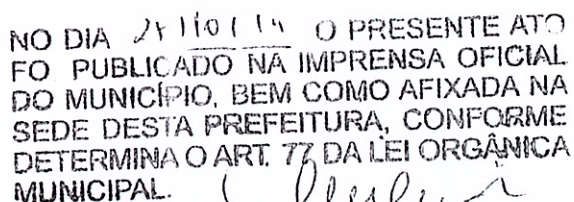 NO DIA O PRESENTE ATO
FO PUBLICADO NA IMPRENSA OFICIAL
DO MUNICÍPIO, BEM COMO AFIXADA NA
SEDE DESTA PREFEITURA, CONFORME
DETERMINA O ART. 77 DA LEI ORGÂNICA
MUNICIPAL.